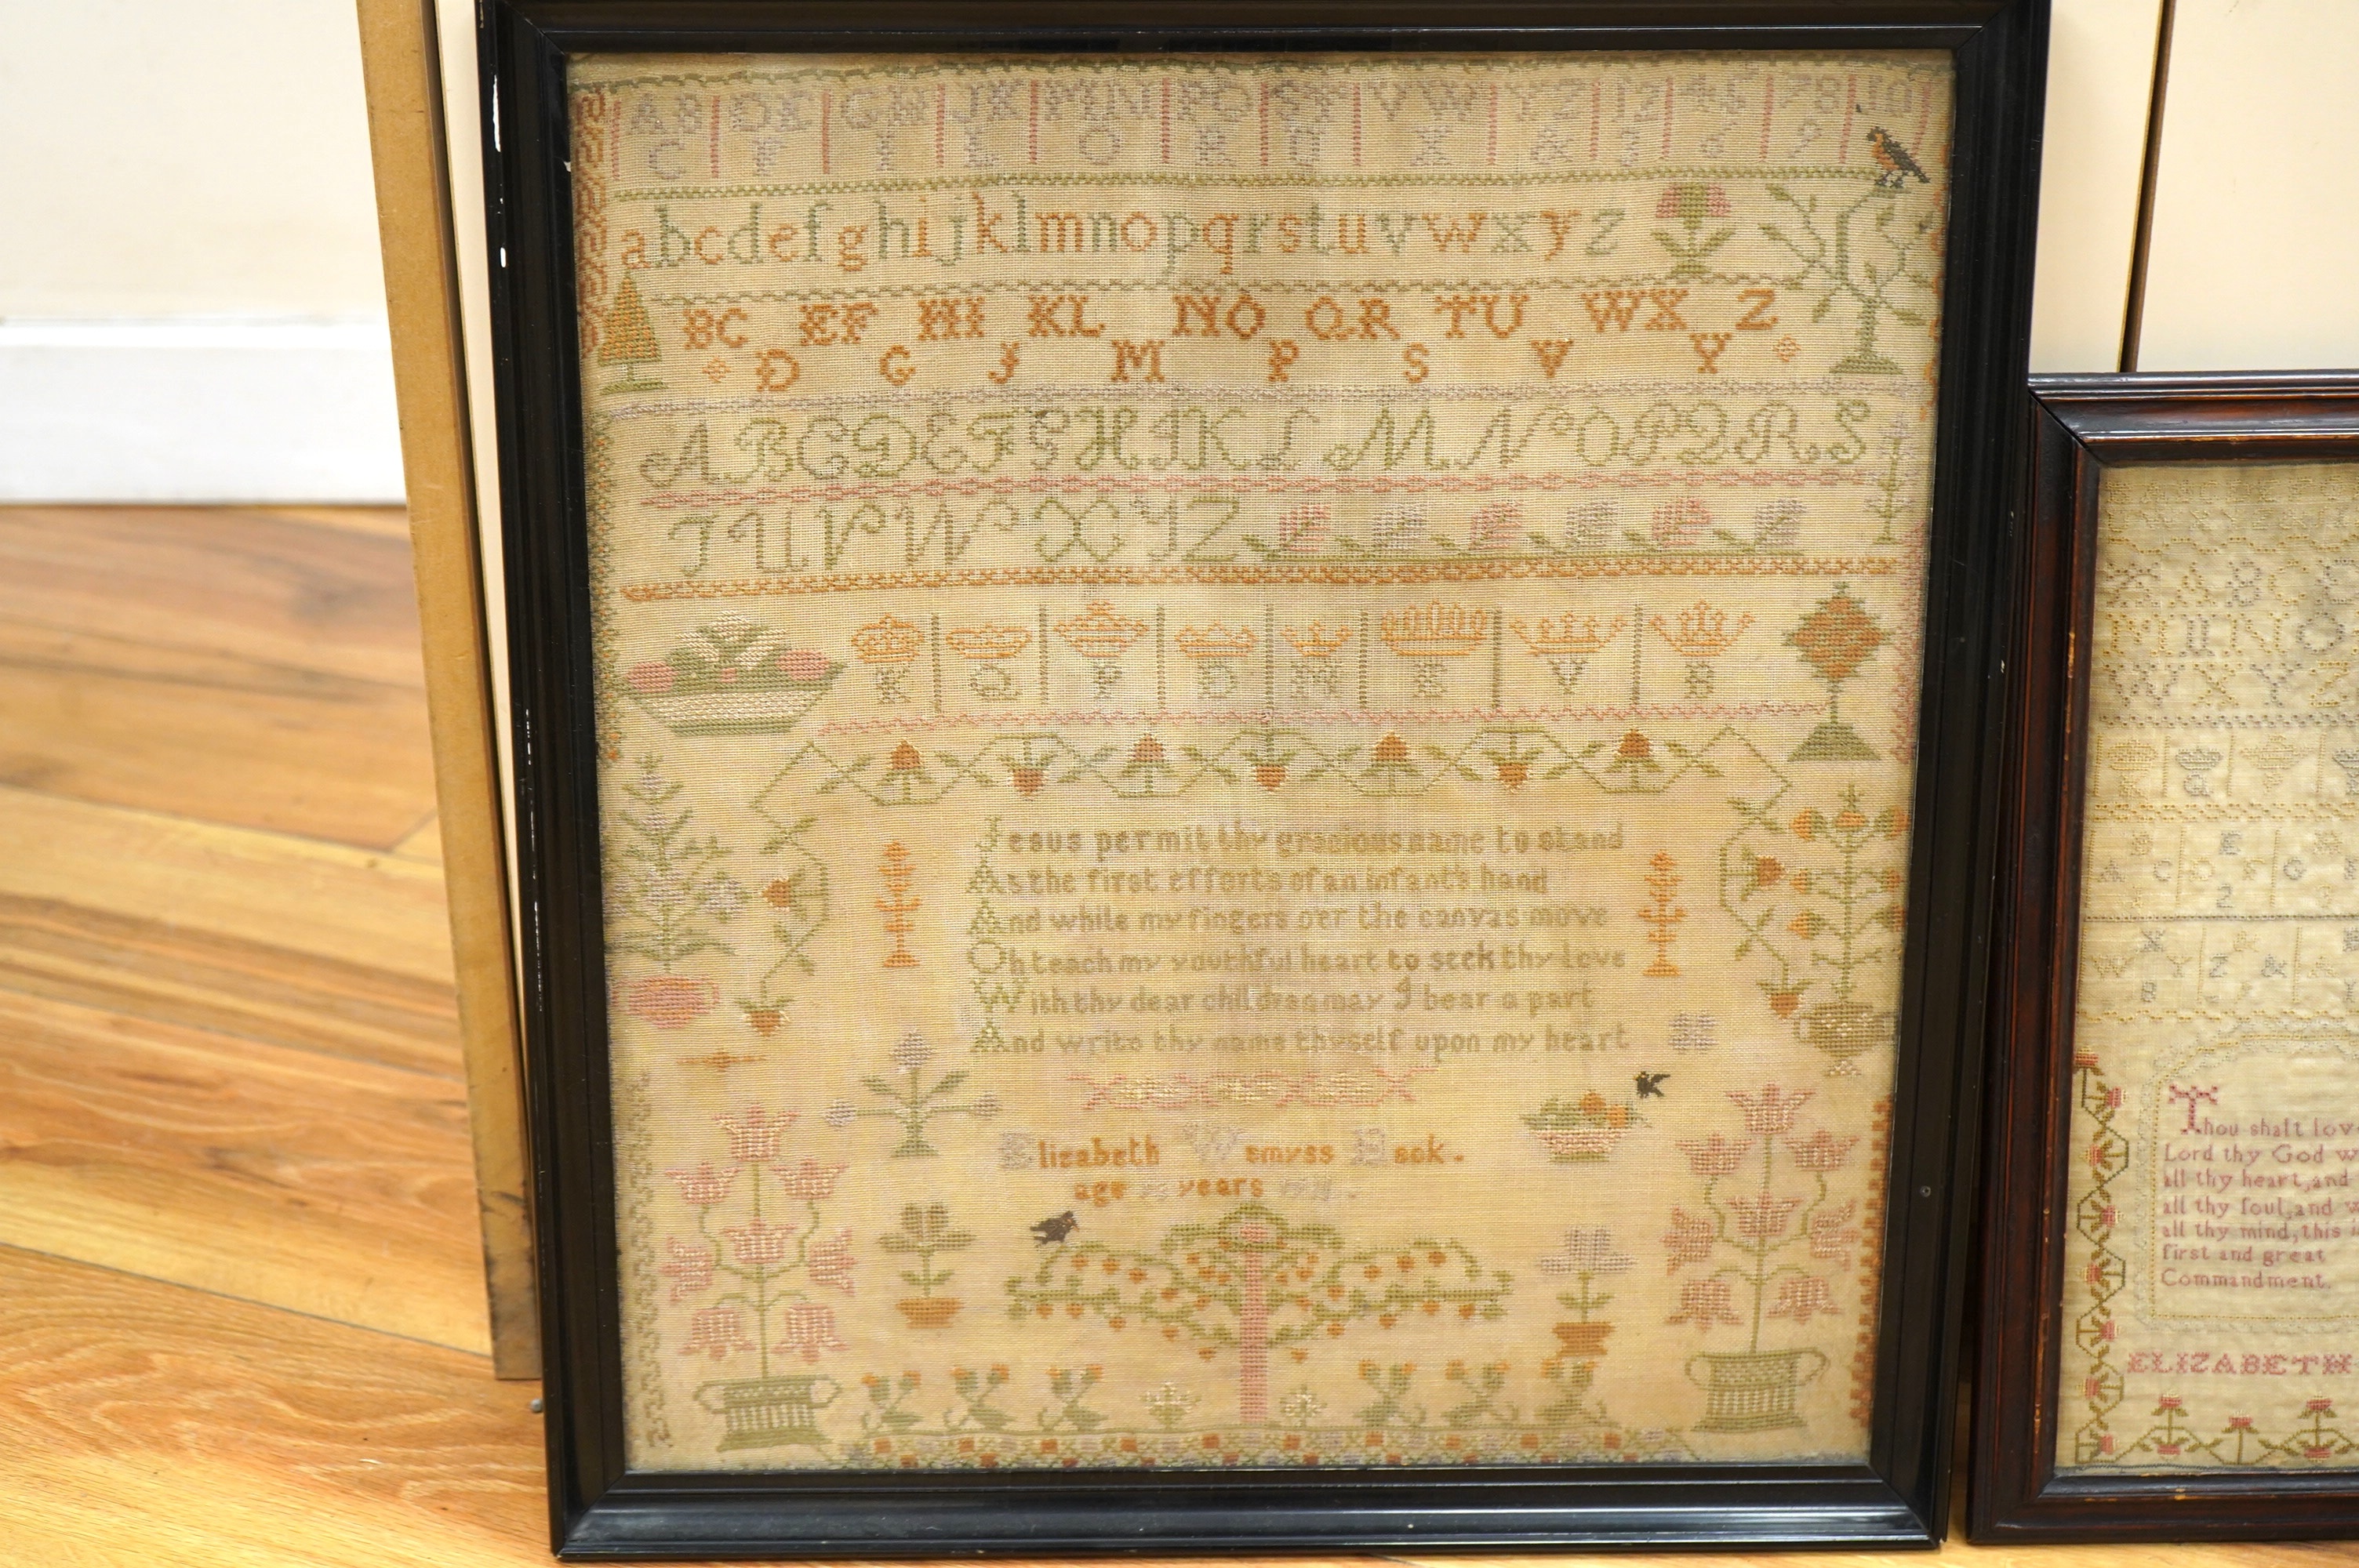 AB DE GH JK MN PQ ST VW YZ 12 45 78 10
C F I L O R U X & 3 6 9
abcdefghijklmnopqrstuvwxyz
BC EF HI KL NO QR TU WX Z
D G J M P S V Y
ABCDEFGHIJKLMNOPQRS
TUVWXYZ
K Q P D M E V B
Jesus permit thy gracious name to stand
As the first efforts of an infants hand
And while my fingers oer the canvas move
Oh teach my youthful heart to seek thy love
With thy dear children may I bear a part
And write thy name thyself upon my heart
Elizabeth Wemyss
age years
WXYZ
Thou shalt love
Lord thy God
all thy heart, and
all thy soul, and
all thy mind, this
first and great
Commandment.
ELIZABETH